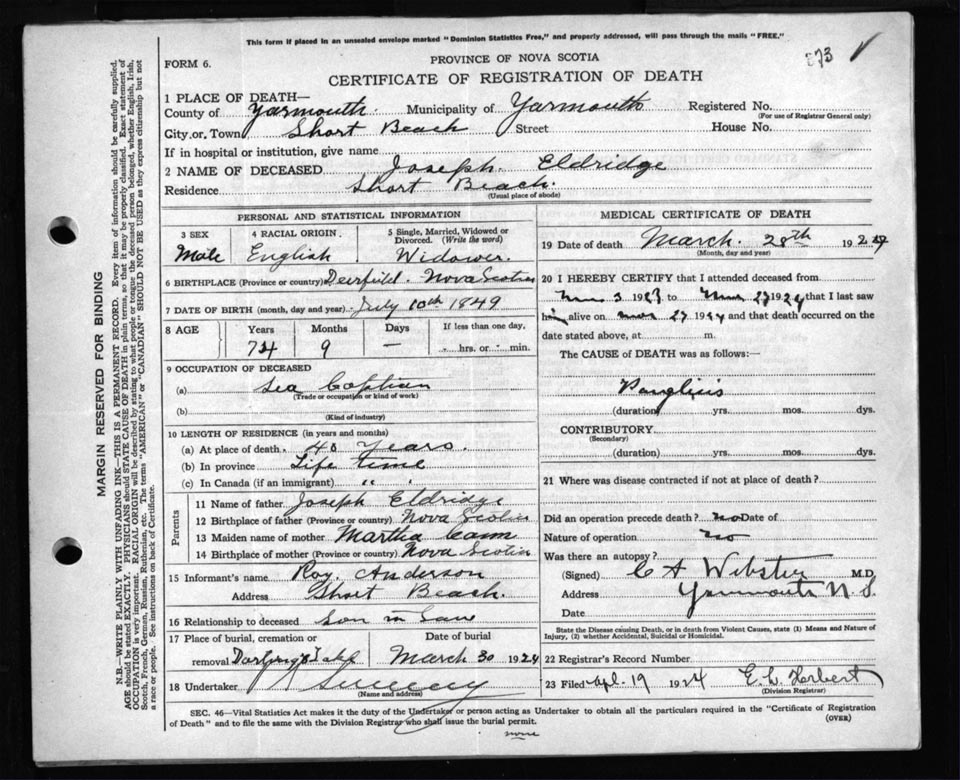 This form if placed in an unsealed envelope marked "Dominion Statistics Free," and properly addressed, will pass through the mails "FREE."
873
FORM 6.
PROVINCE OF NOVA SCOTIA
CERTIFICATE OF REGISTRATION OF DEATH
1 PLACE OF DEATH—
County of Yarmouth. Municipality of Yarmouth Registered No.
(For use of Registrar General only)
City, or, Town Short Beach Street House No.
If in hospital or institution, give name
2 NAME OF DECEASED Joseph. Eldridge
Residence Short Beach.
(Usual place of abode)
PERSONAL AND STATISTICAL INFORMATION
3 SEX
Male
4 RACIAL ORIGIN.
English
5 Single, Married, Widowed or Divorced. (Write the word)
Widower.
6 BIRTHPLACE (Province or country) Deerfield. Nova Scotia
7 DATE OF BIRTH (month, day and year) July 10th 1849
8 AGE Years Months Days If less than one day,
74 9 — hrs. or min.
9 OCCUPATION OF DECEASED
(a) Sea Captian
(Trade or occupation or kind of work)
(b)
(Kind of industry)
10 LENGTH OF RESIDENCE (in years and months)
(a) At place of death. 40 years.
(b) In province Life time
(c) In Canada (if an immigrant) " "
Parents
11 Name of father Joseph Eldridge
12 Birthplace of father (Province or country) Nova Scotia
13 Maiden name of mother Martha Cann
14 Birthplace of mother (Province or country) Nova Scotia
15 Informant's name Roy. Anderson
Address Short Beach.
16 Relationship to deceased Son in Law
17 Place of burial, cremation or Date of burial
removal Darling's Lake March 30 1924
18 Undertaker Sweeny
(Name and address)
MEDICAL CERTIFICATE OF DEATH
19 Date of death March. 28th 1924
(Month, day and year)
20 I HEREBY CERTIFY that I attended deceased from
3 1923 to 27 1924 that I last saw
him alive on Mar 27 1924 and that death occurred on the
date stated above, at m.
The CAUSE of DEATH was as follows:
(duration) yrs. mos. dys.
CONTRIBUTORY
(Secondary)
(duration) yrs. mos. dys.
21 Where was disease contracted if not at place of death?
Did an operation precede death? no Date of
Nature of operation no
Was there an autopsy?
(Signed) C A Webster M.D.
Address Yarmouth N.S.
Date
State the Disease causing Death, or in death from Violent Causes, state (1) Means and Nature of
Injury, (2) whether Accidental, Suicidal or Homicidal.
22 Registrar's Record Number
23 Filed Apl. 19 1924 E. L. Herbert
(Division Registrar)
SEC. 46—Vital Statistics Act makes it the duty of the Undertaker or person acting as Undertaker to obtain all the particulars required in the "Certificate of Registration
of Death" and to file the same with the Division Registrar who shall issue the burial permit. (OVER)
none
MARGIN RESERVED FOR BINDING
N.B.—WRITE PLAINLY WITH UNFADING INK—THIS IS A PERMANENT RECORD. Every item of information should be carefully supplied.
AGE should be stated EXACTLY. PHYSICIANS should STATE CAUSE OF DEATH in plain terms, so that it may be properly classified. Exact statement of
OCCUPATION is very important. RACIAL ORIGIN will be described by stating to what people or tongue the deceased person belonged, whether English, Irish,
Scotch, French, German, Russian, Ruthenian, etc. The terms "AMERICAN" or "CANADIAN" SHOULD NOT BE USED as they express citizenship but not
a race or people. See instructions on back of Certificate.